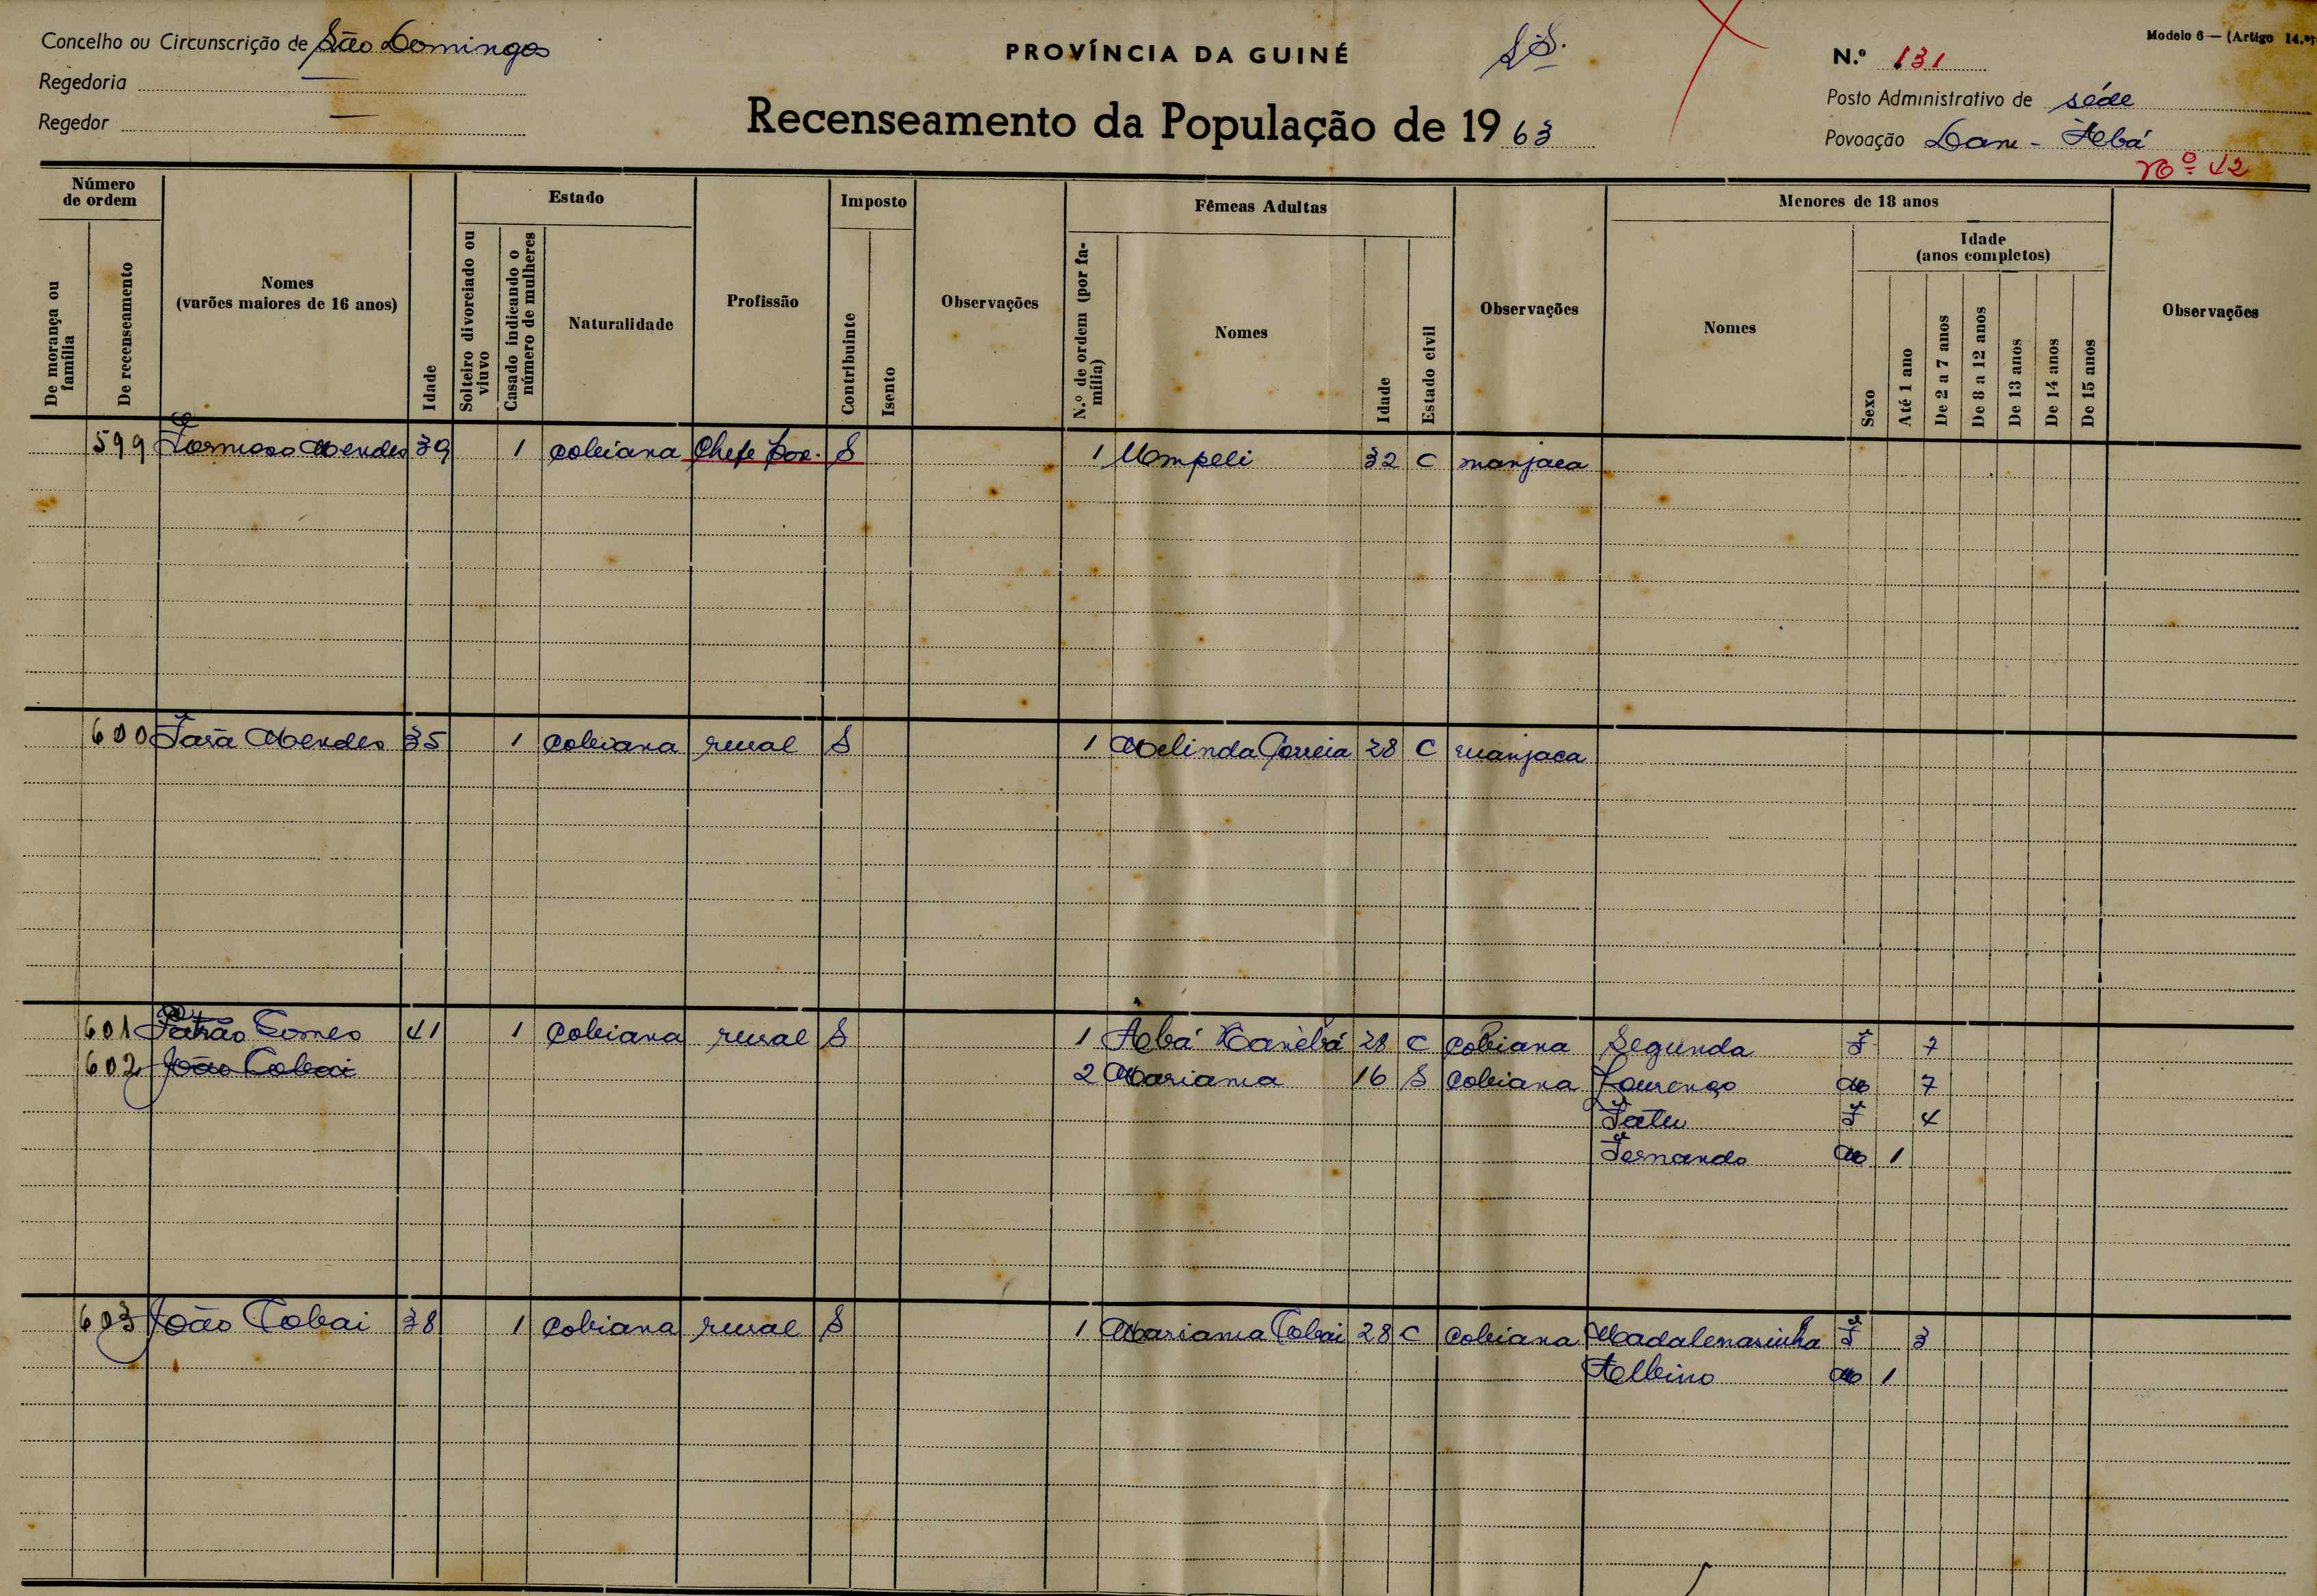 Concelho ou Circunscrição de São Domingos
PROVÍNCIA DA GUINÉ
S.
Modelo 6 — (Artigo 14.º)
N.º 131
Regedoria —
Posto Administrativo de séde
Regedor —
Recenseamento da População de 1963
Povoação
Nº 42
Número de ordem
De morança ou família
De recenseamento
Nomes (varões maiores de 16 anos)
Idade
Estado
Solteiro divorciado ou viuvo
Casado indicando o número de mulheres
Naturalidade
Profissão
Imposto
Contribuinte
Isento
Observações
Fêmeas Adultas
N.º de ordem (por família)
Nomes
Idade
Estado civil
Observações
Menores de 18 anos
Nomes
Sexo
Idade (anos completos)
Até 1 ano
De 2 a 7 anos
De 8 a 12 anos
De 13 anos
De 14 anos
De 15 anos
Observações
599 Formoso Mendes 39 1 cobiana Chefe Pov. S 1 Umpeli 32 C manjaca
600 Fará Mendes 35 1 cobiana rural S 1 Melinda Correia 28 C manjaca
601 Patrão Gomes 41 1 cobiana rural S 1 Abá 28 C cobiana Segunda F 7
602 João Cobai 2 Mariama 16 S cobiana Lourenço M 7
Fatu F 4
Fernando M 1
603 João Cobai 38 1 cobiana rural S 1 Mariama Cobai 28 C cobiana Madalenarinha F 3
Albino M 1